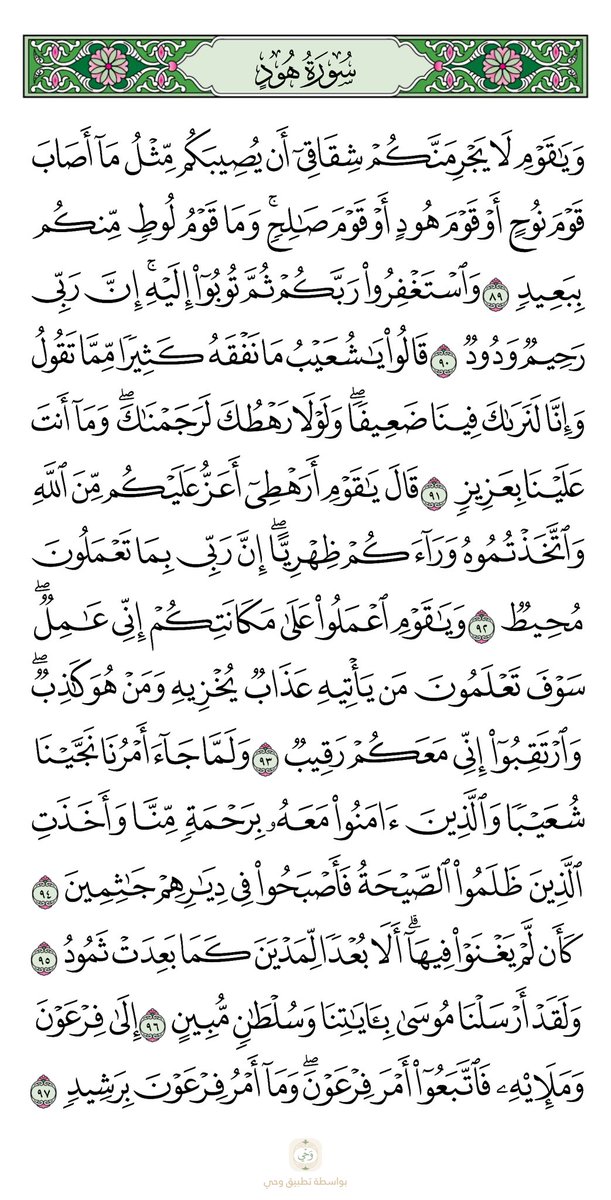 سُورَةُ هُودٍ
وَيَٰقَوْمِ لَا يَجْرِمَنَّكُمْ شِقَاقِىٓ أَن يُصِيبَكُم مِّثْلُ مَآ أَصَابَ
قَوْمَ نُوحٍ أَوْ قَوْمَ هُودٍ أَوْ قَوْمَ صَٰلِحٍ ۚ وَمَا قَوْمُ لُوطٍ مِّنكُم
بِبَعِيدٍ ٨٩ وَٱسْتَغْفِرُوا۟ رَبَّكُمْ ثُمَّ تُوبُوٓا۟ إِلَيْهِ ۚ إِنَّ رَبِّى
رَحِيمٌ وَدُودٌ ٩٠ قَالُوا۟ يَٰشُعَيْبُ مَا نَفْقَهُ كَثِيرًا مِّمَّا تَقُولُ
وَإِنَّا لَنَرَىٰكَ فِينَا ضَعِيفًا ۖ وَلَوْلَا رَهْطُكَ لَرَجَمْنَٰكَ ۖ وَمَآ أَنتَ
عَلَيْنَا بِعَزِيزٍ ٩١ قَالَ يَٰقَوْمِ أَرَهْطِىٓ أَعَزُّ عَلَيْكُم مِّنَ ٱللَّهِ
وَٱتَّخَذْتُمُوهُ وَرَآءَكُمْ ظِهْرِيًّا ۖ إِنَّ رَبِّى بِمَا تَعْمَلُونَ
مُحِيطٌ ٩٢ وَيَٰقَوْمِ ٱعْمَلُوا۟ عَلَىٰ مَكَانَتِكُمْ إِنِّى عَٰمِلٌ ۖ
سَوْفَ تَعْلَمُونَ مَن يَأْتِيهِ عَذَابٌ يُخْزِيهِ وَمَنْ هُوَ كَٰذِبٌ ۖ
وَٱرْتَقِبُوٓا۟ إِنِّى مَعَكُمْ رَقِيبٌ ٩٣ وَلَمَّا جَآءَ أَمْرُنَا نَجَّيْنَا
شُعَيْبًا وَٱلَّذِينَ ءَامَنُوا۟ مَعَهُۥ بِرَحْمَةٍ مِّنَّا وَأَخَذَتِ
ٱلَّذِينَ ظَلَمُوا۟ ٱلصَّيْحَةُ فَأَصْبَحُوا۟ فِى دِيَٰرِهِمْ جَٰثِمِينَ ٩٤
كَأَن لَّمْ يَغْنَوْا۟ فِيهَآ ۗ أَلَا بُعْدًا لِّمَدْيَنَ كَمَا بَعِدَتْ ثَمُودُ ٩٥
وَلَقَدْ أَرْسَلْنَا مُوسَىٰ بِـَٔايَٰتِنَا وَسُلْطَٰنٍ مُّبِينٍ ٩٦ إِلَىٰ فِرْعَوْنَ
وَمَلَإِي۟هِۦ فَٱتَّبَعُوٓا۟ أَمْرَ فِرْعَوْنَ ۖ وَمَآ أَمْرُ فِرْعَوْنَ بِرَشِيدٍ ٩٧
وَحْي
بواسطة تطبيق وحي